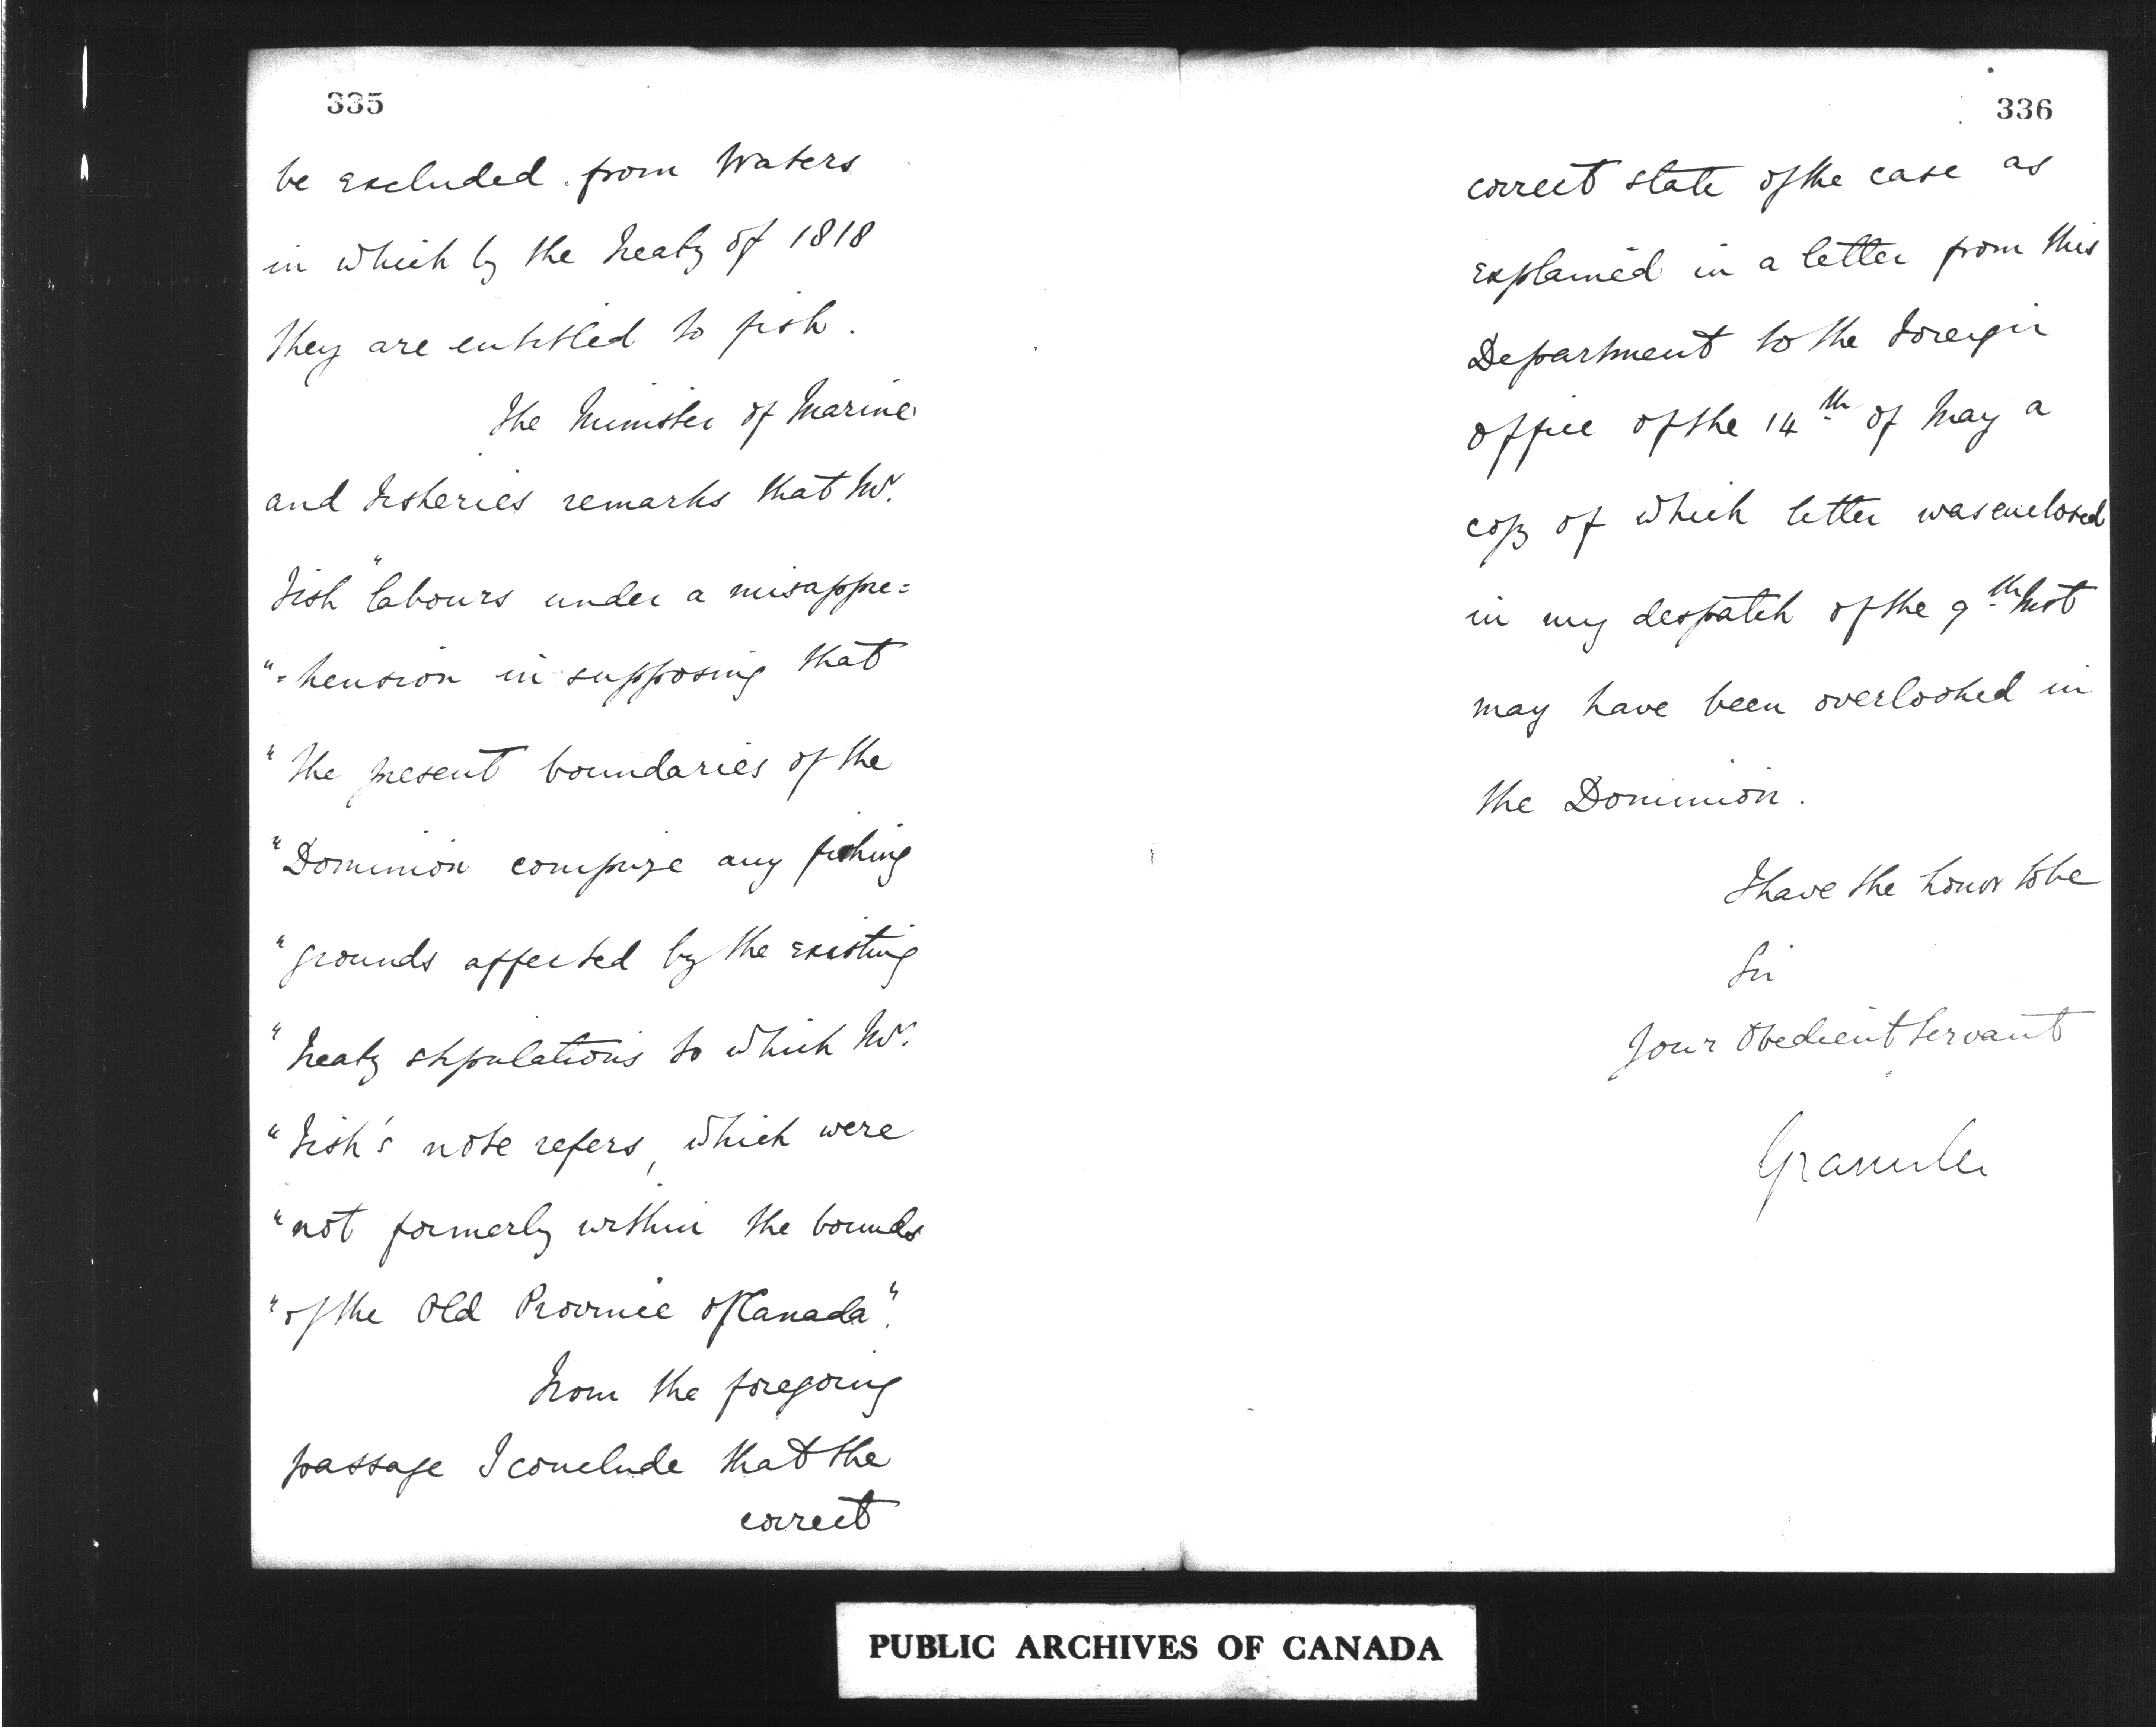 335
be excluded from Waters
in which by the Treaty of 1818
they are entitled to fish.
The Minister of Marine
and Fisheries remarks that Mr.
Fish "labours under a misappre=
"=hension in supposing that
"the present boundaries of the
"Dominion comprize any fishing
"grounds affected by the existing
"Treaty stipulations to which Mr.
"Fish's note refers, which were
"not formerly within the bounds
"of the Old Province of Canada".
From the foregoing
passage I conclude that the
correct
336
correct state of the case as
explained in a letter from this
Department to the Foreign
Office of the 14th of May a
copy of which letter was enclosed
in my despatch of the 9th Inst
may have been overlooked in
the Dominion.
I have the honor to be
Sir
Your Obedient Servant
Granville
PUBLIC ARCHIVES OF CANADA